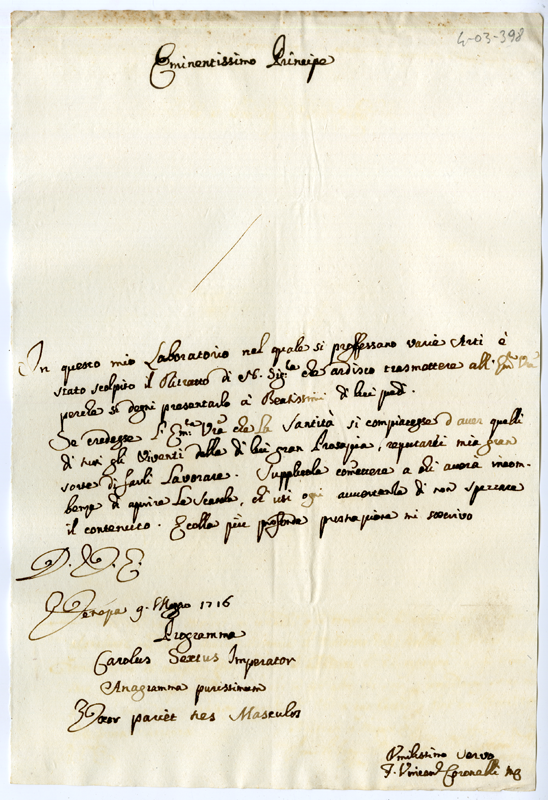 4-03-398
Eminentissimo Principe
In questo mio Laboratorio nel quale si proffessano varie Arti è
stato scolpito il Ritratto di N. Sig.re che ardisco trasmettere all' Em. Vra
perche si degni presentarlo à Beatissimi di lui piedi.
Se credesse l' Em. Vra che la Santità si compiacesse d'aver quelli
di tutti gli Viventi della di lui gran Prosapia, reputarei mia gran
sorte di farli Lavorare. Supplicola comettere a chi avera incom-
benza di aprire la Scatola, ch' usi ogni avvertenza di non spezzare
il contenuto. E colla più profonda prostrazione mi soscrivo
D. V. E.
Venezia 9. Marzo 1716
Programma
Carolus Sextus Imperator
Anagramma purissimum
Uxor pariet tres Masculos
Umilissimo servo
F. Vincenzo Coronelli